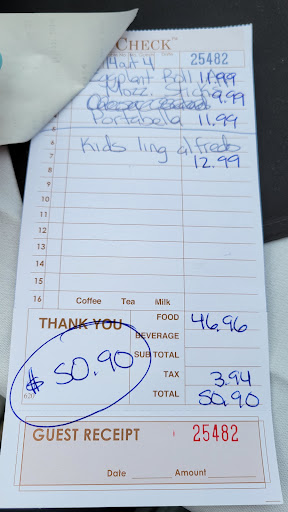 CHECK™
25482
Eggplant Roll 11.99
Mozz. Stick 9.99
Portabella 11.99
6
Kids ling alfredo
12.99
8
9
10
11
12
13
14
15
16 Coffee Tea Milk
THANK YOU
FOOD 46.96
BEVERAGE
SUB TOTAL
TAX 3.94
TOTAL 50.90
$50.90
GUEST RECEIPT 25482
Date Amount